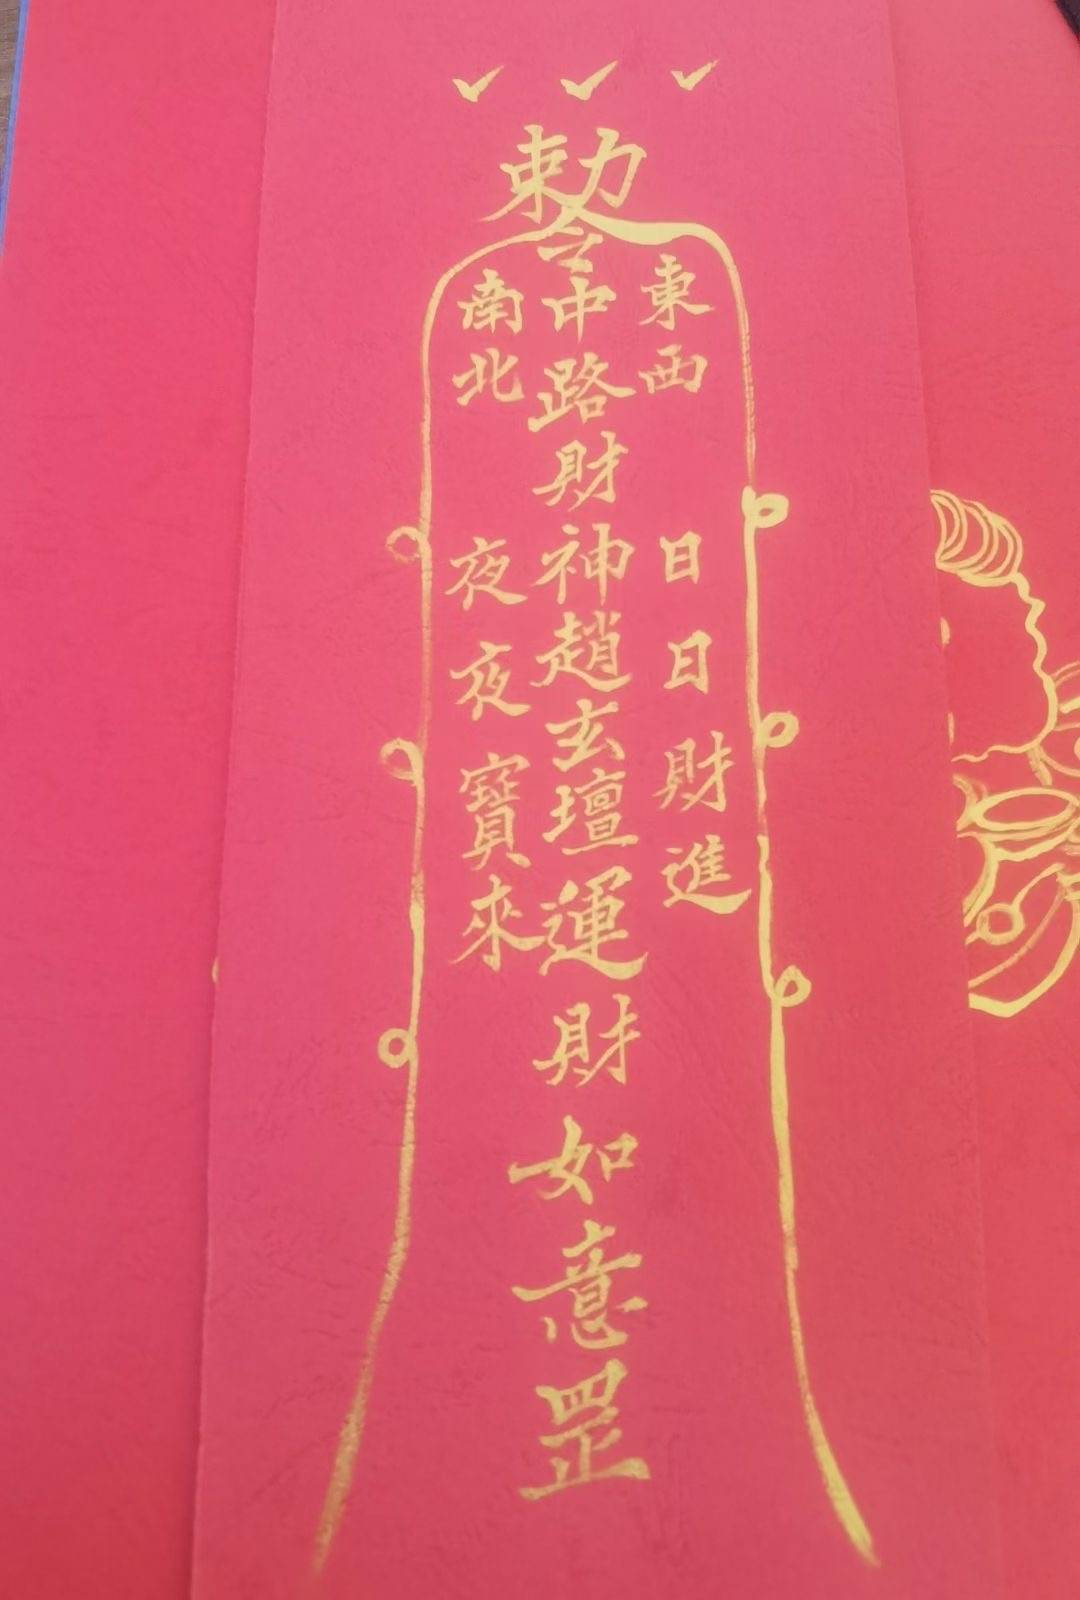 勅令
東西
中路財神趙玄壇運財如意罡
南北
日日財進
夜夜寶來